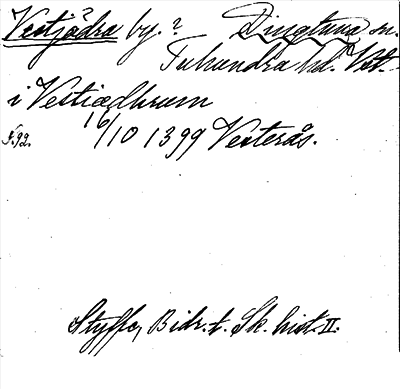 Vestjädra by.? Dingtuna sn.
Tuhundra hd. Vst.
i Vestiædhrum
s. 92. 16/10 1399 Vesterås.
Styffe, Bidr. t. Sk. hist. II.